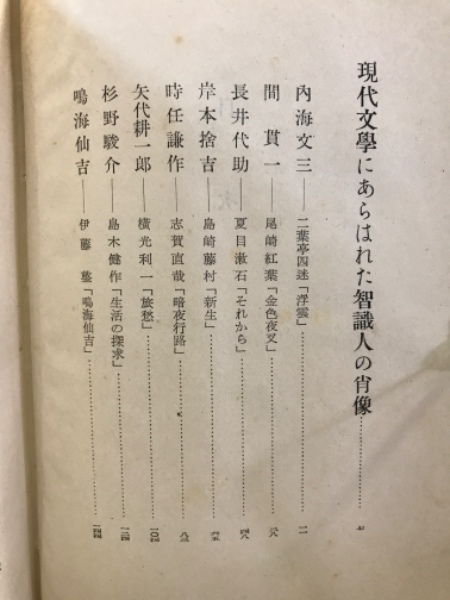 現代文學にあらはれた智識人の肖像…………七
內海文三――二葉亭四迷「浮雲」…………一一
間貫一――尾崎紅葉「金色夜叉」…………二八
長井代助――夏目漱石「それから」…………四八
岸本捨吉――島崎藤村「新生」…………六五
時任謙作――志賀直哉「暗夜行路」…………八三
矢代耕一郎――橫光利一「旅愁」…………一〇四
杉野駿介――島木健作「生活の探求」…………一二四
鳴海仙吉――伊藤整「鳴海仙吉」…………一四四